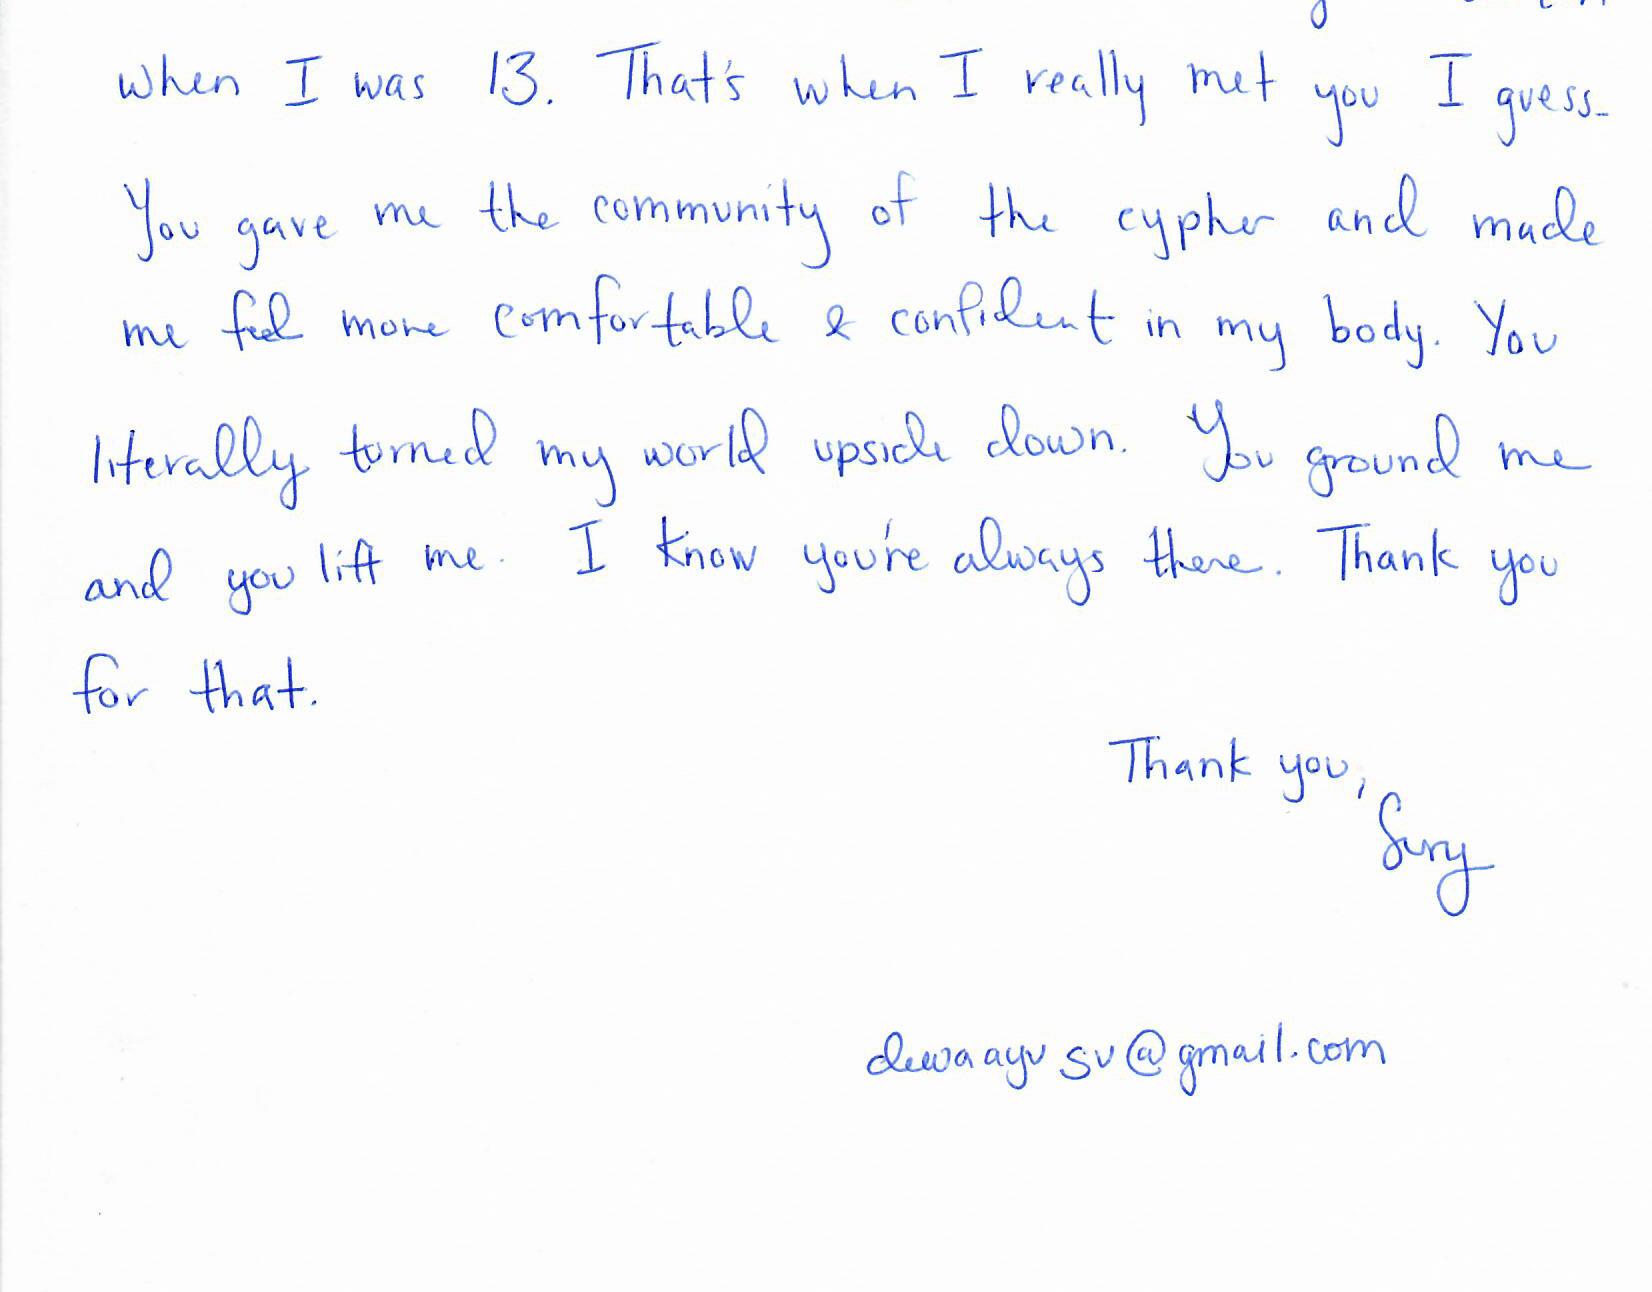 when I was 13. That's when I really met you I guess.
You gave me the community of the cypher and made
me feel more comfortable & confident in my body. You
literally turned my world upside down. You ground me
and you lift me. I know you're always there. Thank you
for that.
Thank you,
Sury
dewaayusu@gmail.com